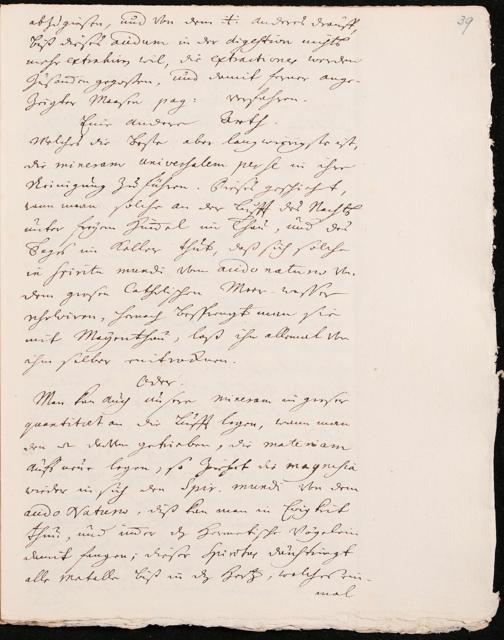 39
abzugießen, und von dem anderes drauff,
biß dieses in der digestion nichts
mehr extrahiren wil, die extractiones werden
zusammen gegossen, und damit ferner ange-
zeigter Maasen pag: verfahren.
Eine andere Arth.
Welches die beste aber langwierigste ist,
die mineram universalem per se in ihre
Reinigung zu führen. Dieses geschicht,
wann man solche an der Lufft des Nachts
unter freyen Himel im Thau, und des
Tages im Keller thut, daß sich solche
in spiritu mundi vom
dem großen Catholischen Meer-wasser
hernach man sie
mit Mayenthau, laß ihn allemal von
ihm selber eintrocknen.
Oder.
Man kan auch unsere mineram in großer
quantitæt an die Lufft legen, wann man
den getrieben, die materiam
auffs neue legen, so ziehet die magnesia
wieder in sich den Spir. mundi von dem
Naturæ, diß kan man in Ewigkeit
thun, und Hermetische Vögelein
damit fangen; dieser Spiritus durchdringt
alle Metalle biß in Hertz, welches ein-
mal